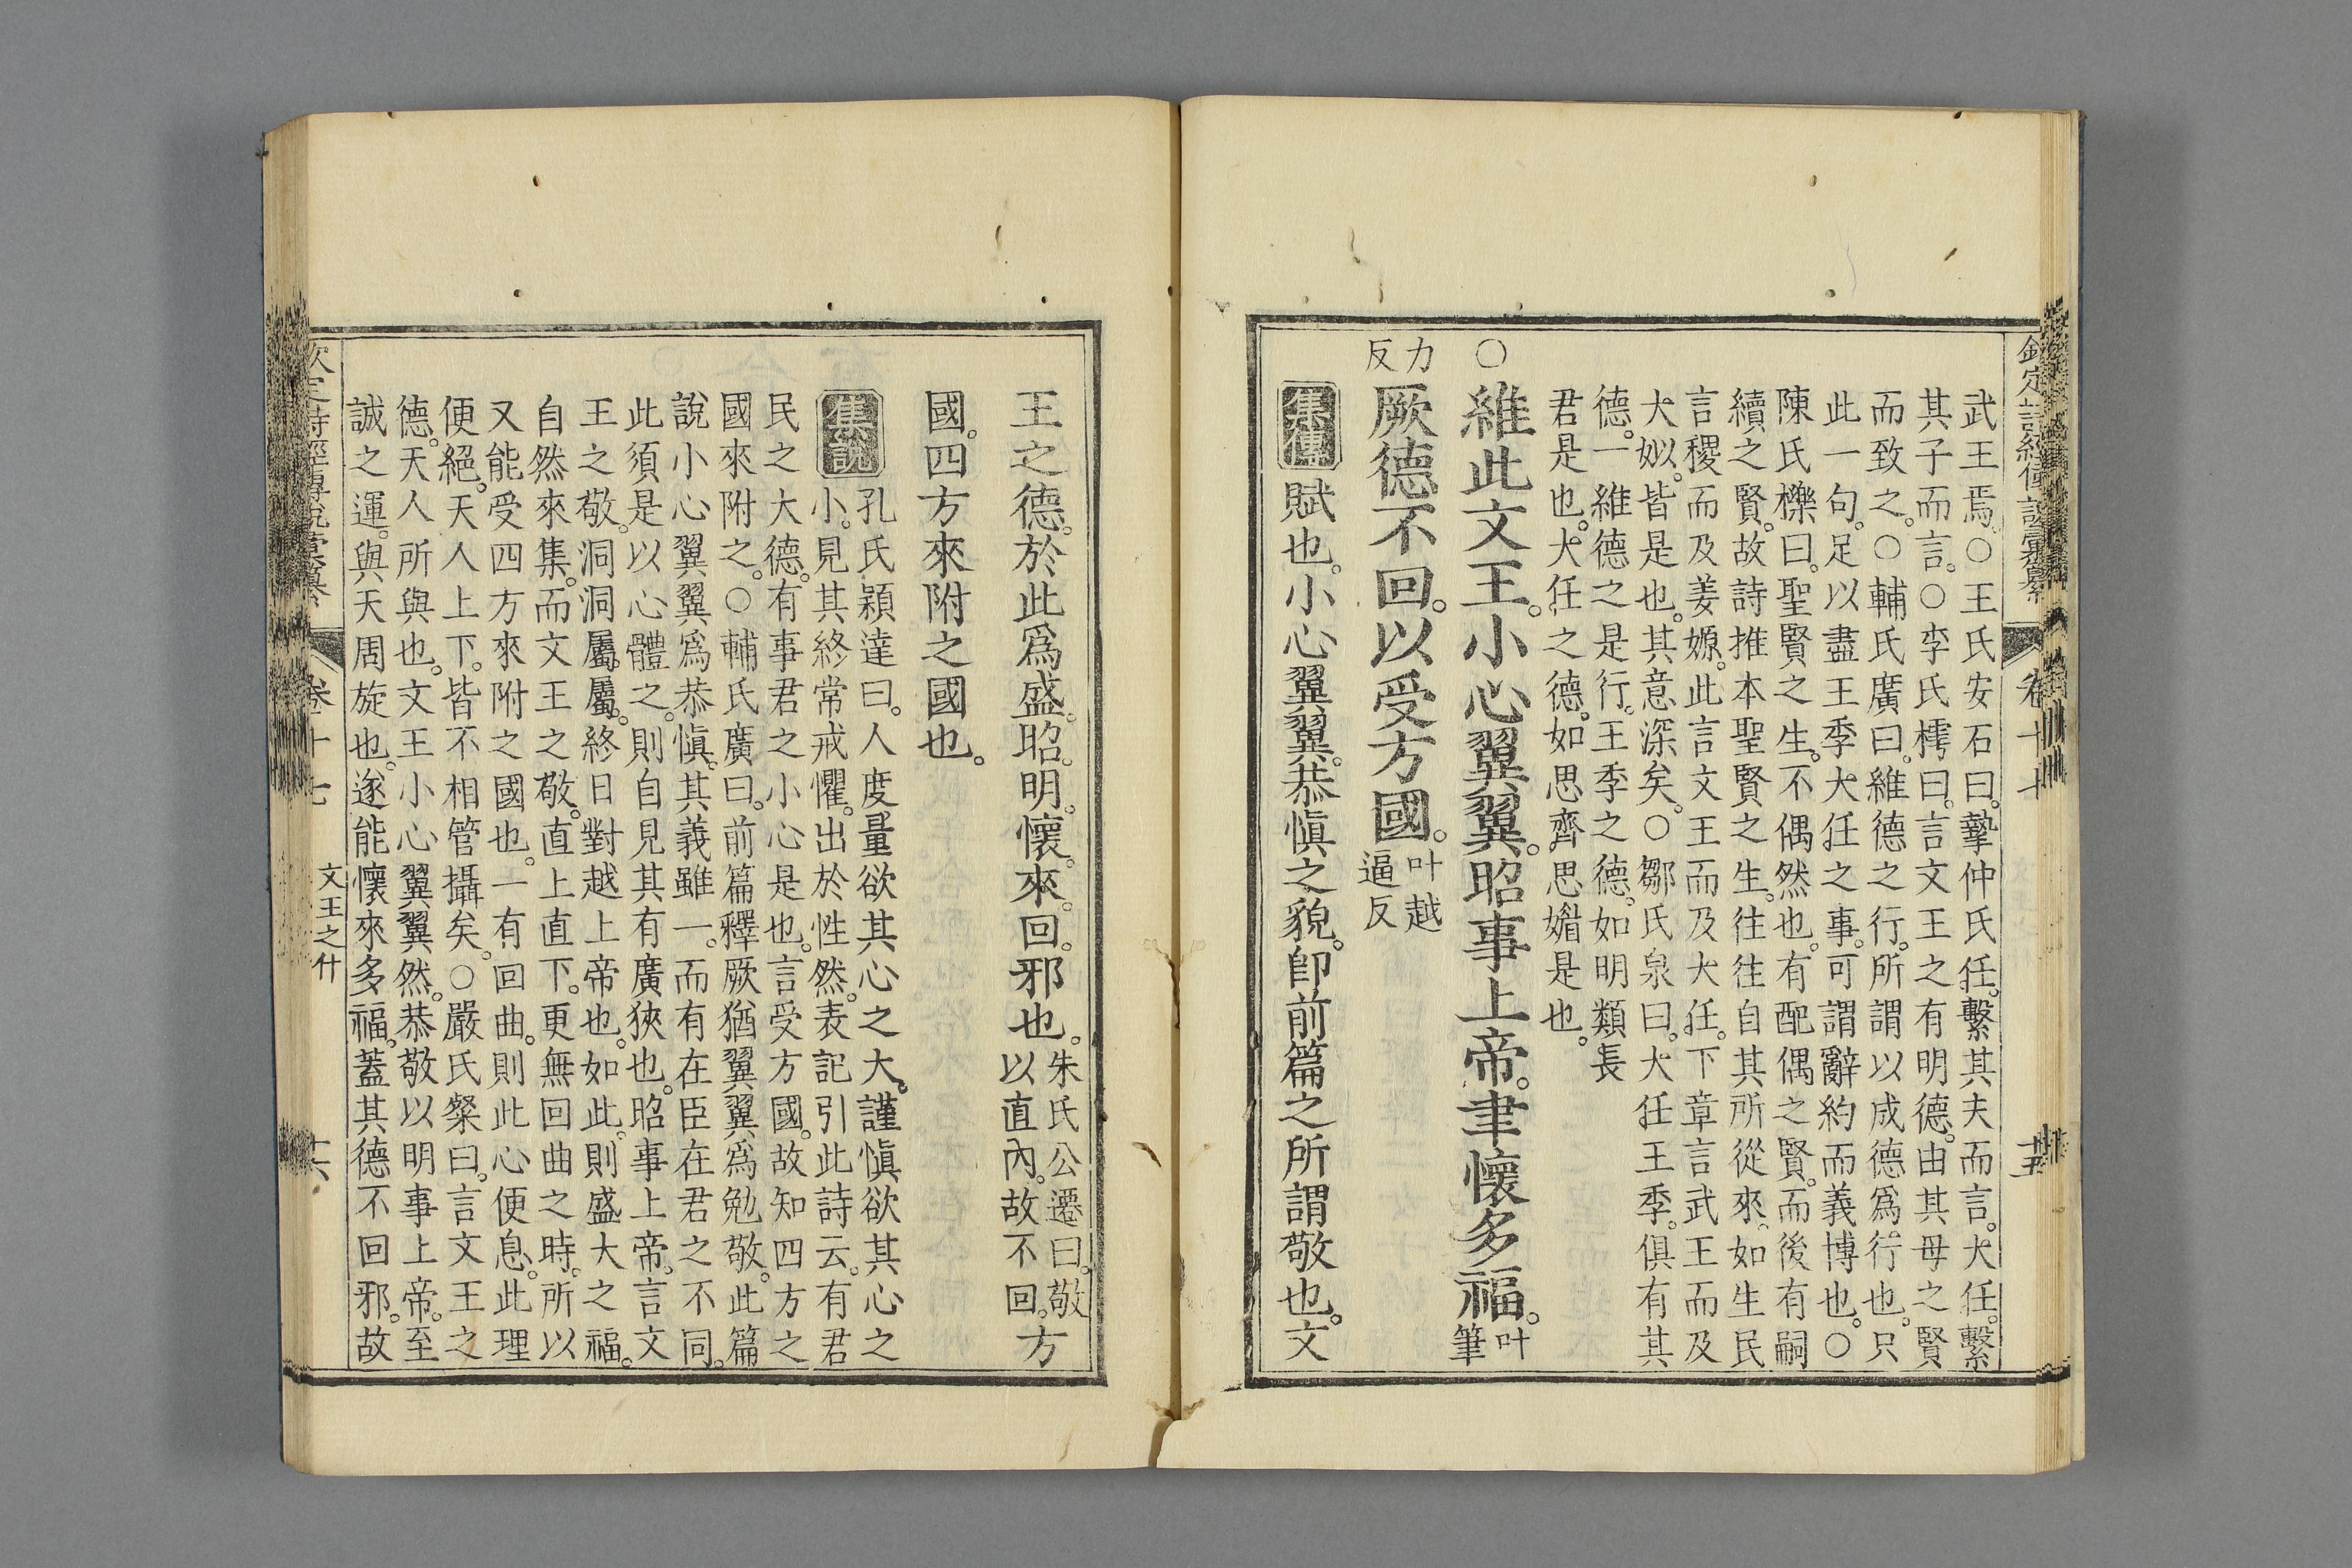 欽定詩經傳說彙纂 卷十七
武王焉。○王氏安石曰。摯仲氏任。繫其夫而言。大任。繫
其子而言。○李氏樗曰。言文王之有明德。由其母之賢
而致之。○輔氏廣曰。維德之行。所謂以成德爲行也。只
此一句。足以盡王季大任之事。可謂辭約而義博也。○
陳氏櫟曰。聖賢之生。不偶然也。有配偶之賢。而後有嗣
續之賢。故詩推本聖賢之生。往往自其所從來。如生民
言稷而及姜嫄。此言文王而及大任。下章言武王而及
大姒。皆是也。其意深矣。○鄒氏泉曰。大任王季。俱有其
德。一維德之是行。王季之德。如明類長
君是也。大任之德。如思齊思媚是也。
○維此文王。小心翼翼。昭事上帝。聿懷多福。叶筆
力反厥德不回。以受方國。叶越逼反
集傳賦也。小心翼翼。恭愼之貌。卽前篇之所謂敬也。文
王之德。於此爲盛。昭。明。懷。來。回。邪也。朱氏公遷曰。敬以直內。故不回。方
國。四方來附之國也。
集說孔氏穎達曰。人度量欲其心之大。謹愼欲其心之
小。見其終常戒懼。出於性然。表記引此詩云。有君
民之大德。有事君之小心是也。言受方國。故知四方之
國來附之。○輔氏廣曰。前篇釋厥猶翼翼爲勉敬。此篇
說小心翼翼爲恭愼。其義雖一。而有在臣在君之不同。
此須是以心體之。則自見其有廣狹也。昭事上帝。言文
王之敬。洞洞屬屬。終日對越上帝也。如此。則盛大之福。
自然來集。而文王之敬。直上直下。更無回曲之時。所以
又能受四方來附之國也。一有回曲。則此心便息。此理
便絕。天人上下。皆不相管攝矣。○嚴氏粲曰。言文王之
德。天人所與也。文王小心翼翼然。恭敬以明事上帝。至
誠之運。與天周旋也。遂能懷來多福。蓋其德不回邪。故
欽定詩經傳說彙纂 卷十七 文王之什